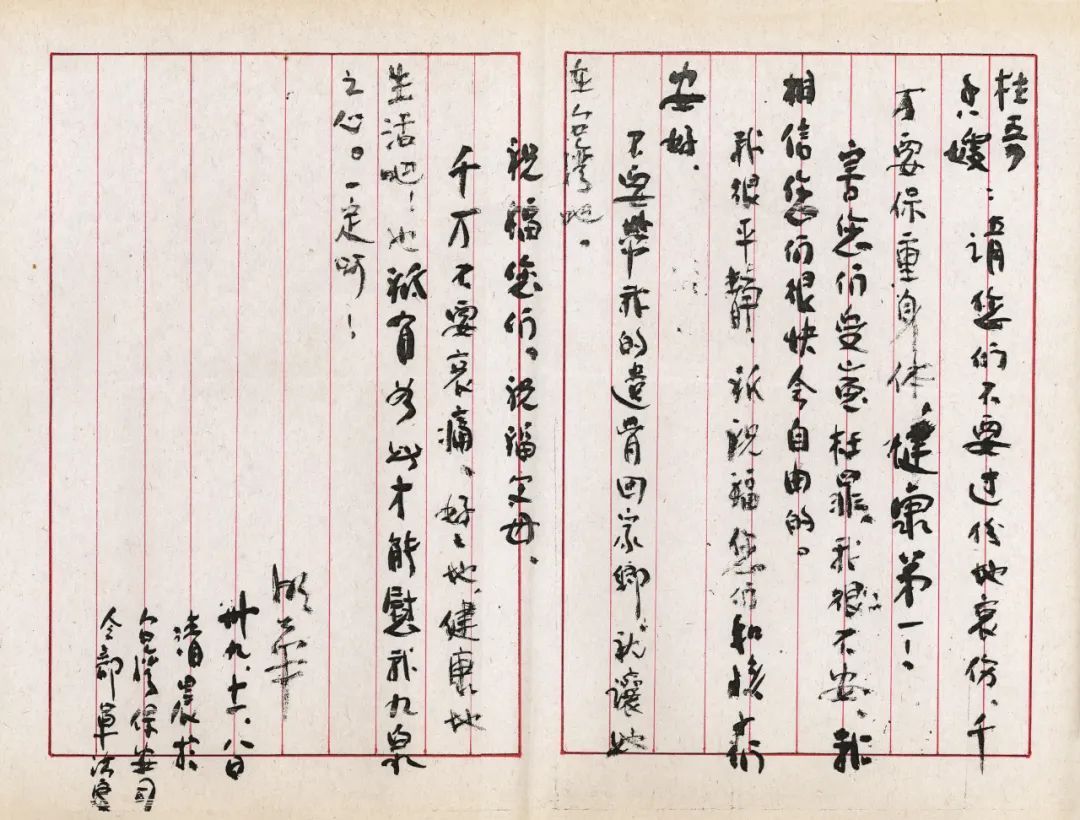 桂五
嫂:請您们不要过份地哀伤、千
万要保重身体健康第一!
害您们受寃枉罪、我很不安、我
相信您们很快会自由的。
我很平靜、祇祝福您们和孩子们
安好.
不要带我的遺骨回家鄉、就讓她
在台湾吧。
祝福您们。祝福父母、
千万不要哀痛、好々地、健康地
生活吧!也祇有如此才能慰我九泉
之心。一定啊!
卅九、十一、八日
清晨於
台湾保安司
令部軍法處